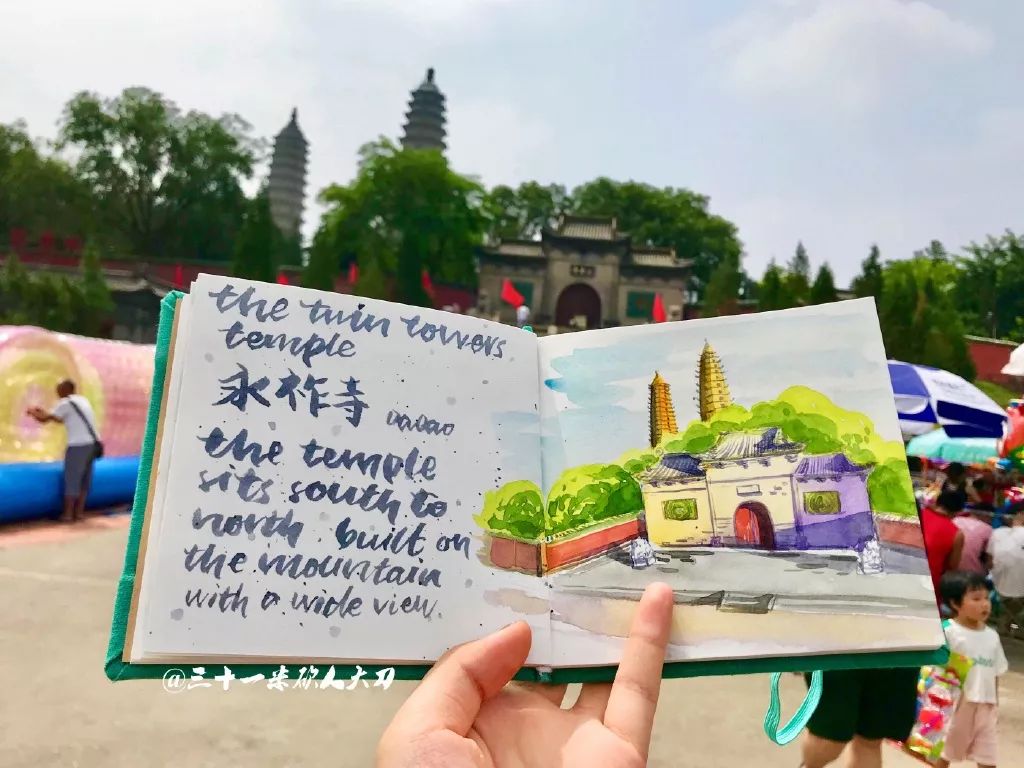 the twin towers
temple
永祚寺
the temple
sits south to
north built on
the mountain
with a wide view.
@三十一米砍人大刀